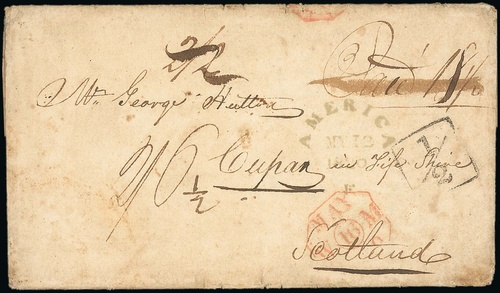 2/2
Paid 1/1½
Mr. George Hutton
AMERICA
MY 12
1/2
2/6½ Cupar in Fife Shire
MAY
16
Scotland